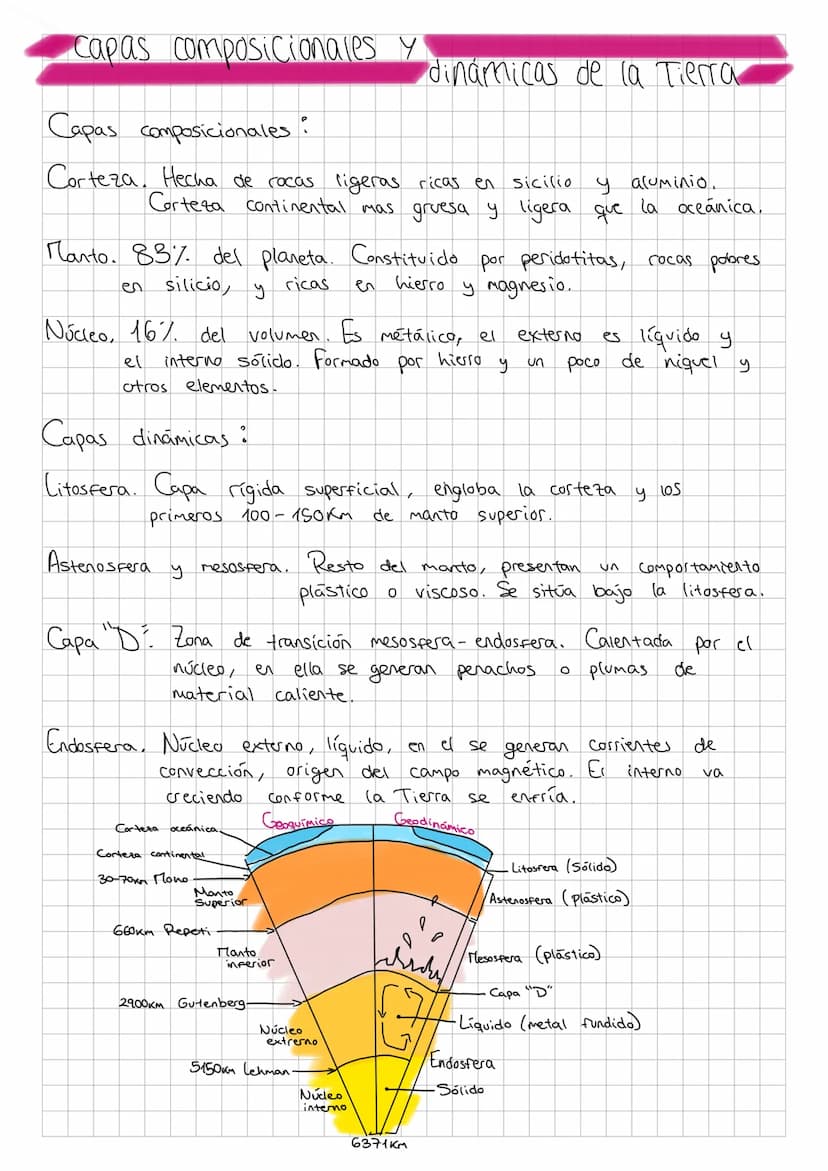 Capas composicionales y
dinámicas de la Tierra
Capas composicionales:
Corteza. Hecha de rocas ligeras ricas en sicilio y aluminio.
Corteza continental mas gruesa y ligera que la oceánica.
Manto. 83% del planeta. Constituido por peridotitas, rocas pobres
en silicio, y ricas en hierro y magnesio.
Núcleo, 16% del volumen. Es métálico, el externo es líquido y
el interno sólido. Formado por hierro y un poco de niquel y
otros elementos.
Capas dinámicas:
Litosfera. Capa rígida superficial, engloba la corteza y los
primeros 100-150Km de manto superior.
Astenosfera y mesosfera. Resto del manto, presentan un comportamiento
plástico o viscoso. Se sitúa bajo la litosfera.
Capa "D". Zona de transición mesosfera-endosfera. Calentada por el
núcleo, en ella se generan penachos o plumas de
material caliente.
Endosfera. Núcleo externo, líquido, en el se generan corrientes de
convección, origen del campo magnético. El interno va
creciendo conforme la Tierra se enfría.
Geoquímico Geodinámico
Corteza oceánica
Corteza continental
30-70Km Moho
Manto
Superior
660Km Repeti
Manto
inferior
2900Km Gutenberg
Núcleo
extrerno
5150Km Lehman
Núcleo
interno
6371Km
Litosfera (Sólido)
Astenosfera (plástico)
Mesosfera (plástico)
Capa "D"
Líquido (metal fundido)
Endosfera
Sólido